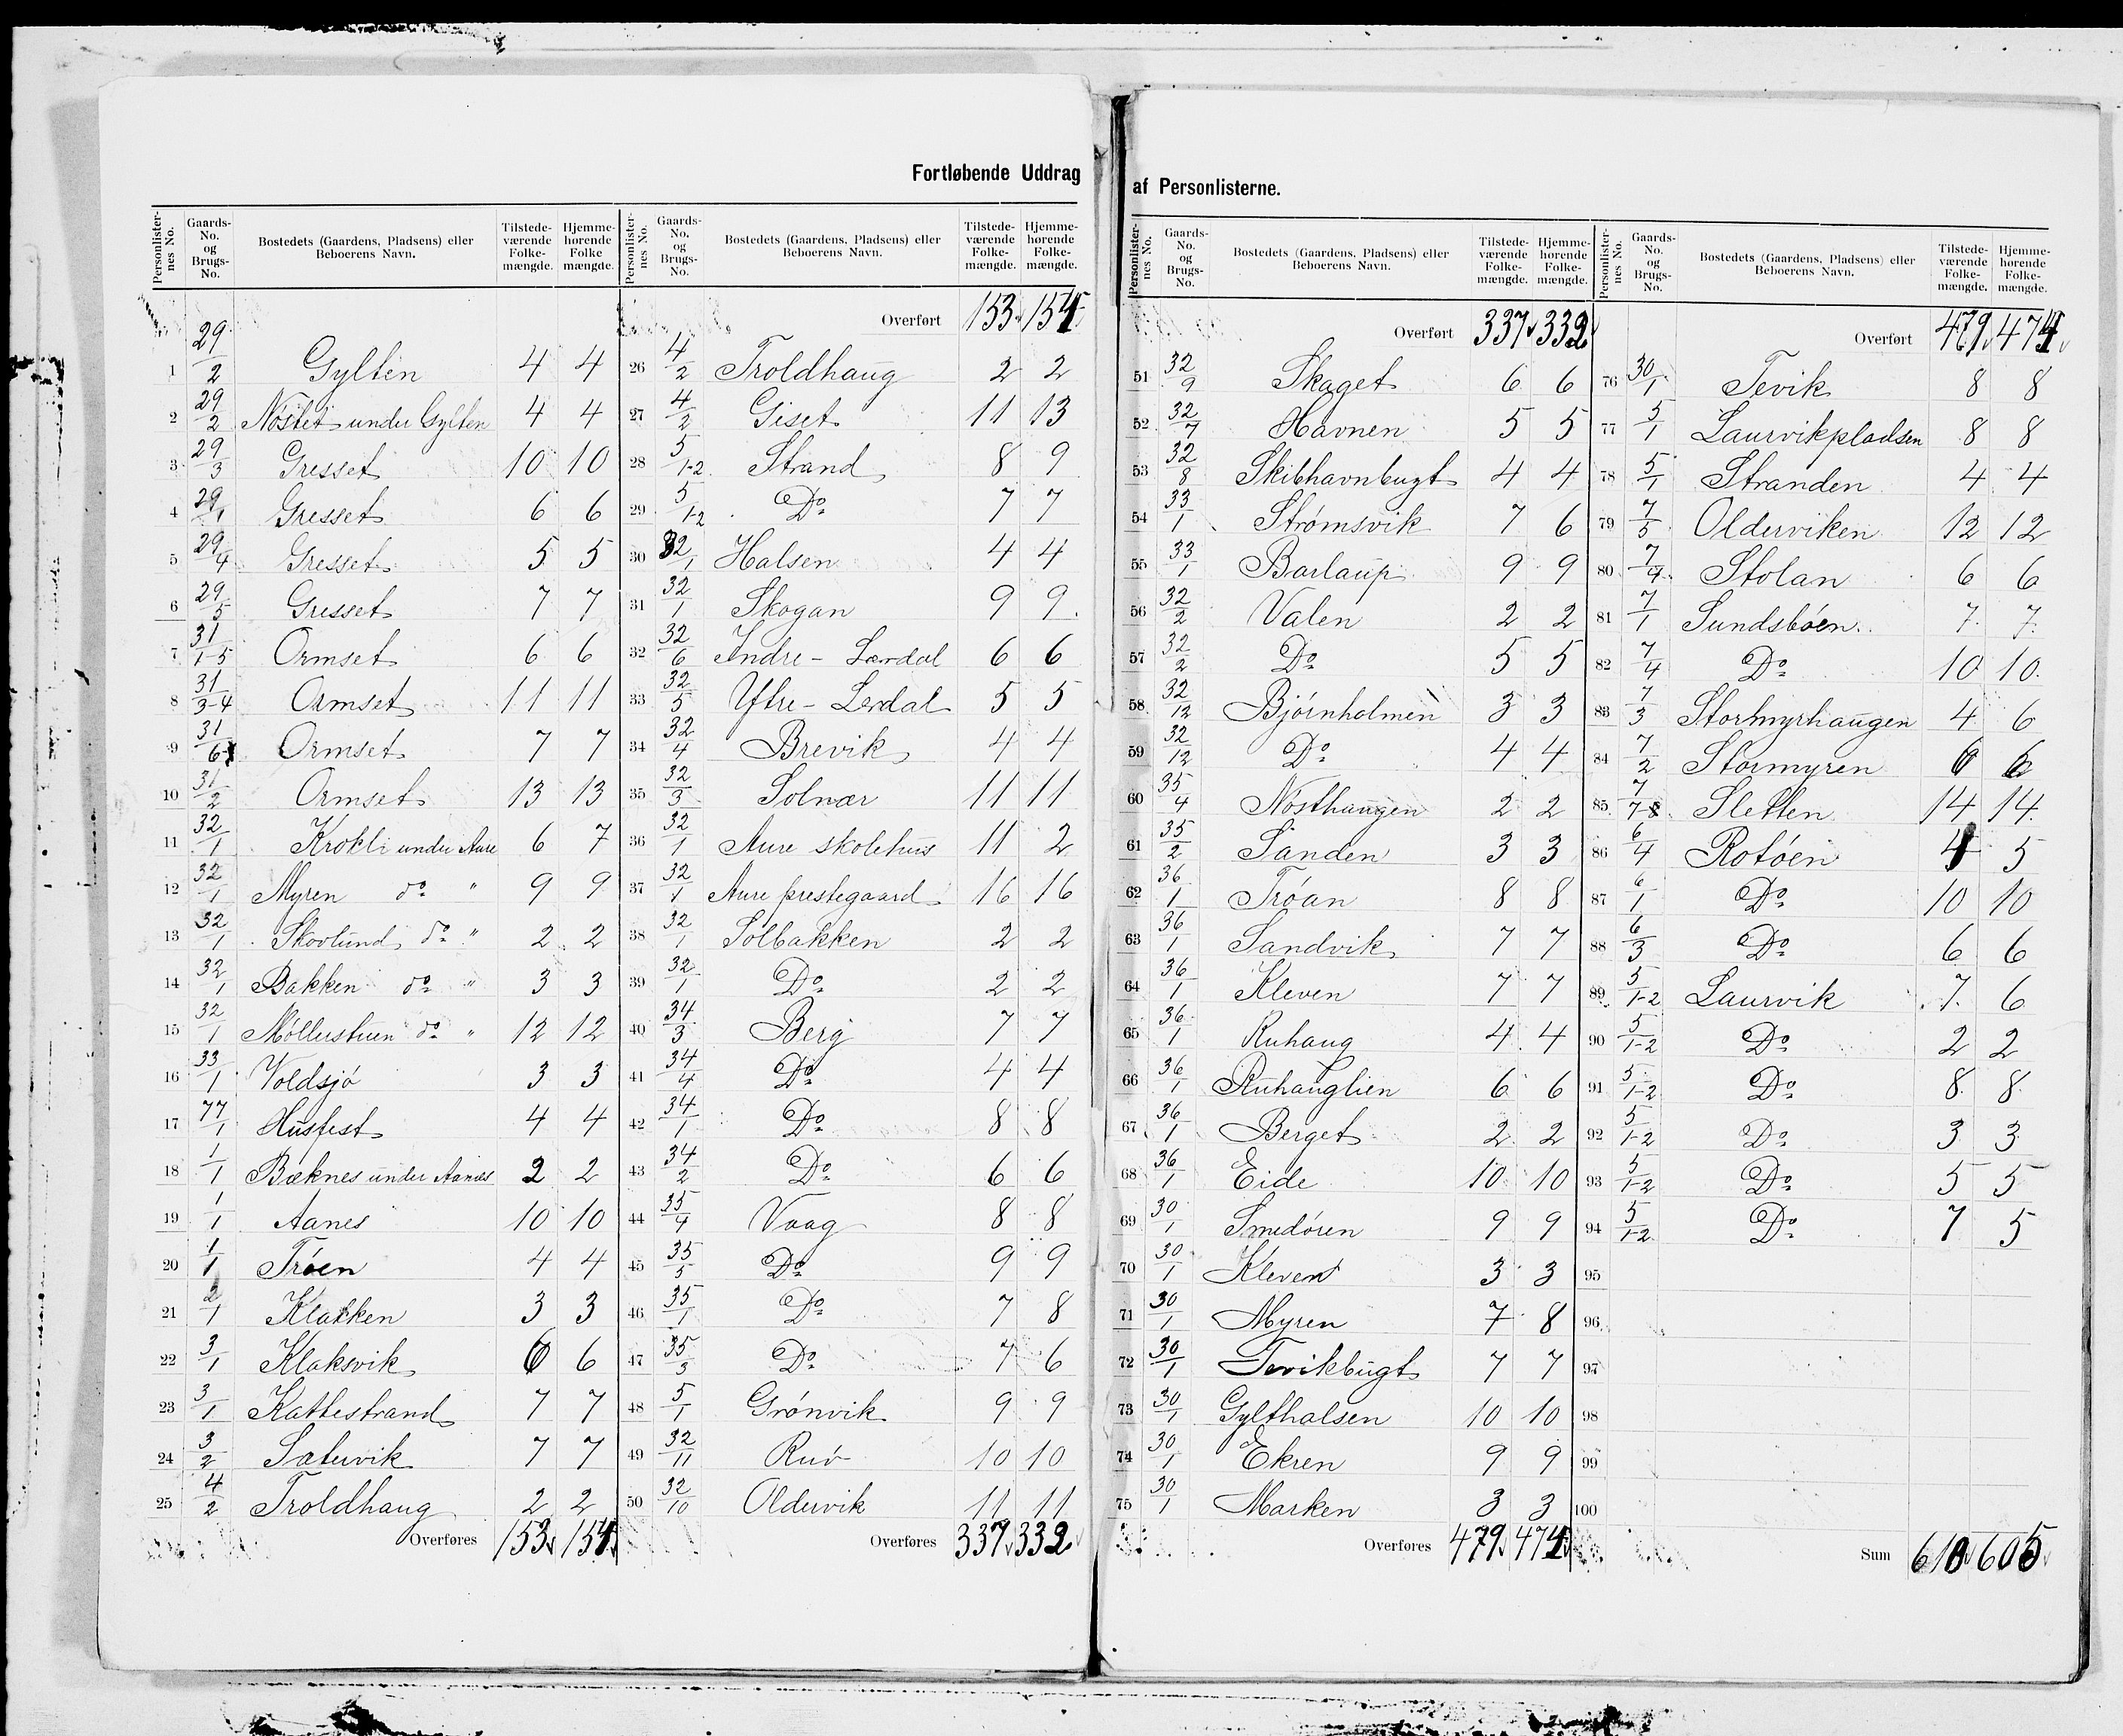 Fortløbende Uddrag af Personlisterne.
Personlister-nes No. | Gaards-No. og Brugs-No. | Bostedets (Gaardens, Pladsens) eller Beboerens Navn. | Tilstede-værende Folke-mængde. | Hjemme-hørende Folke mængde.
1 29/2 Gylten 4 4
2 29/2 Nøstet under Gylten 4 4
3 29/3 Gresset 10 10
4 29/1 Gresset 6 6
5 29/4 Gresset 5 5
6 29/5 Gresset 7 7
7 31/1-5 Ormset 6 6
8 31/3-4 Ormset 11 11
9 31/6 Ormset 7 7
10 31/2 Ormset 13 13
11 32/1 Krokli under Aure 6 7
12 32/1 Myren do " 9 9
13 32/1 Skovlund do " 2 2
14 32/1 Bakken do " 3 3
15 32/1 Møllerstuen do " 12 12
16 33/1 Voldsjø 3 3
17 77/1 Husfest 4 4
18 1/1 Bæknes under Aanes 2 2
19 1/1 Aanes 10 10
20 1/1 Trøen 4 4
21 2/1 Klakken 3 3
22 3/1 Klaksvik 6 6
23 3/1 Kattestrand 7 7
24 3/2 Sætervik 7 7
25 4/2 Troldhaug 2 2
Overføres 153 154
Personlister-nes No. | Gaards-No. og Brugs-No. | Bostedets (Gaardens, Pladsens) eller Beboerens Navn. | Tilstede-værende Folke-mængde. | Hjemme-hørende Folke-mængde.
Overført 153 154
26 4/2 Troldhaug 2 2
27 4/2 Giset 11 13
28 5/1-2 Strand 8 9
29 5/1-2 Do 7 7
30 32/1 Halsen 4 4
31 32/1 Skogan 9 9
32 32/6 Indre-Lerdal 6 6
33 32/5 Yttre-Lerdal 5 5
34 32/4 Brevik 4 4
35 32/3 Solvær 11 11
36 32/1 Aure skolehus 11 2
37 32/1 Aure prestegaard 16 16
38 32/1 Solbakken 2 2
39 32/1 Do 2 2
40 34/3 Berg 7 7
41 34/4 Do 4 4
42 34/1 Do 8 8
43 34/2 Do 6 6
44 35/4 Vaag 8 8
45 35/5 Do 9 9
46 35/1 Do 7 8
47 35/3 Do 7 6
48 5/1 Grønvik 9 9
49 32/11 10 10
50 32/10 Oldervik 11 11
Overføres 337 332
Personlister-nes No. | Gaards-No. og Brugs-No. | Bostedets (Gaardens, Pladsens) eller Beboerens Navn. | Tilstede-værende Folke-mængde. | Hjemme-hørende Folke-mængde.
Overført 337 332
51 32/9 Skaget 6 6
52 32/7 Havnen 5 5
53 32/8 Skibhavnbugt 4 4
54 33/1 Strømsvik 7 6
55 33/1 Barlaup 9 9
56 32/2 Valen 2 2
57 32/2 Do 5 5
58 32/12 Bjørnholmen 3 3
59 32/12 Do 4 4
60 35/4 Nøsthaugen 2 2
61 35/2 Sanden 3 3
62 36/1 Trøan 8 8
63 36/1 Sandvik 7 7
64 36/1 Kleven 7 7
65 36/1 Ruhaug 4 4
66 36/1 Ruhauglien 6 6
67 36/1 Berget 2 2
68 36/1 Eide 10 10
69 30/1 Smedøren 9 9
70 30/1 Kleven 3 3
71 30/1 Myren 7 8
72 30/1 Tevikbugt 7 7
73 30/1 Gylthalsen 10 10
74 30/1 Ekren 9 9
75 30/1 Marken 3 3
Overføres 479 474
Personlister-nes No. | Gaards-No. og Brugs-No. | Bostedets (Gaardens, Pladsens) eller Beboerens Navn. | Tilstede-værende Folke-mængde. | Hjemme-hørende Folke-mængde.
Overført 479 474
76 30/1 Tevik 8 8
77 5/1 Laurvikpladsen 8 8
78 5/1 Stranden 4 4
79 7/5 Olderviken 12 12
80 7/4 Stolan 6 6
81 7/1 Sundsbøen 7 7
82 7/4 Do 10 10
83 7/3 Stormyrhaugen 4 6
84 7/2 Stormyren 6 6
85 7/7-8 Sletten 14 14
86 6/4 Rotøen 4 5
87 6/1 Do 10 10
88 6/3 Do 6 6
89 5/1-2 Laurvik 7 6
90 5/1-2 Do 2 2
91 5/1-2 Do 8 8
92 5/1-2 Do 3 3
93 5/1-2 Do 5 5
94 5/1-2 Do 7 5
95
96
97
98
99
100
Sum 610 605